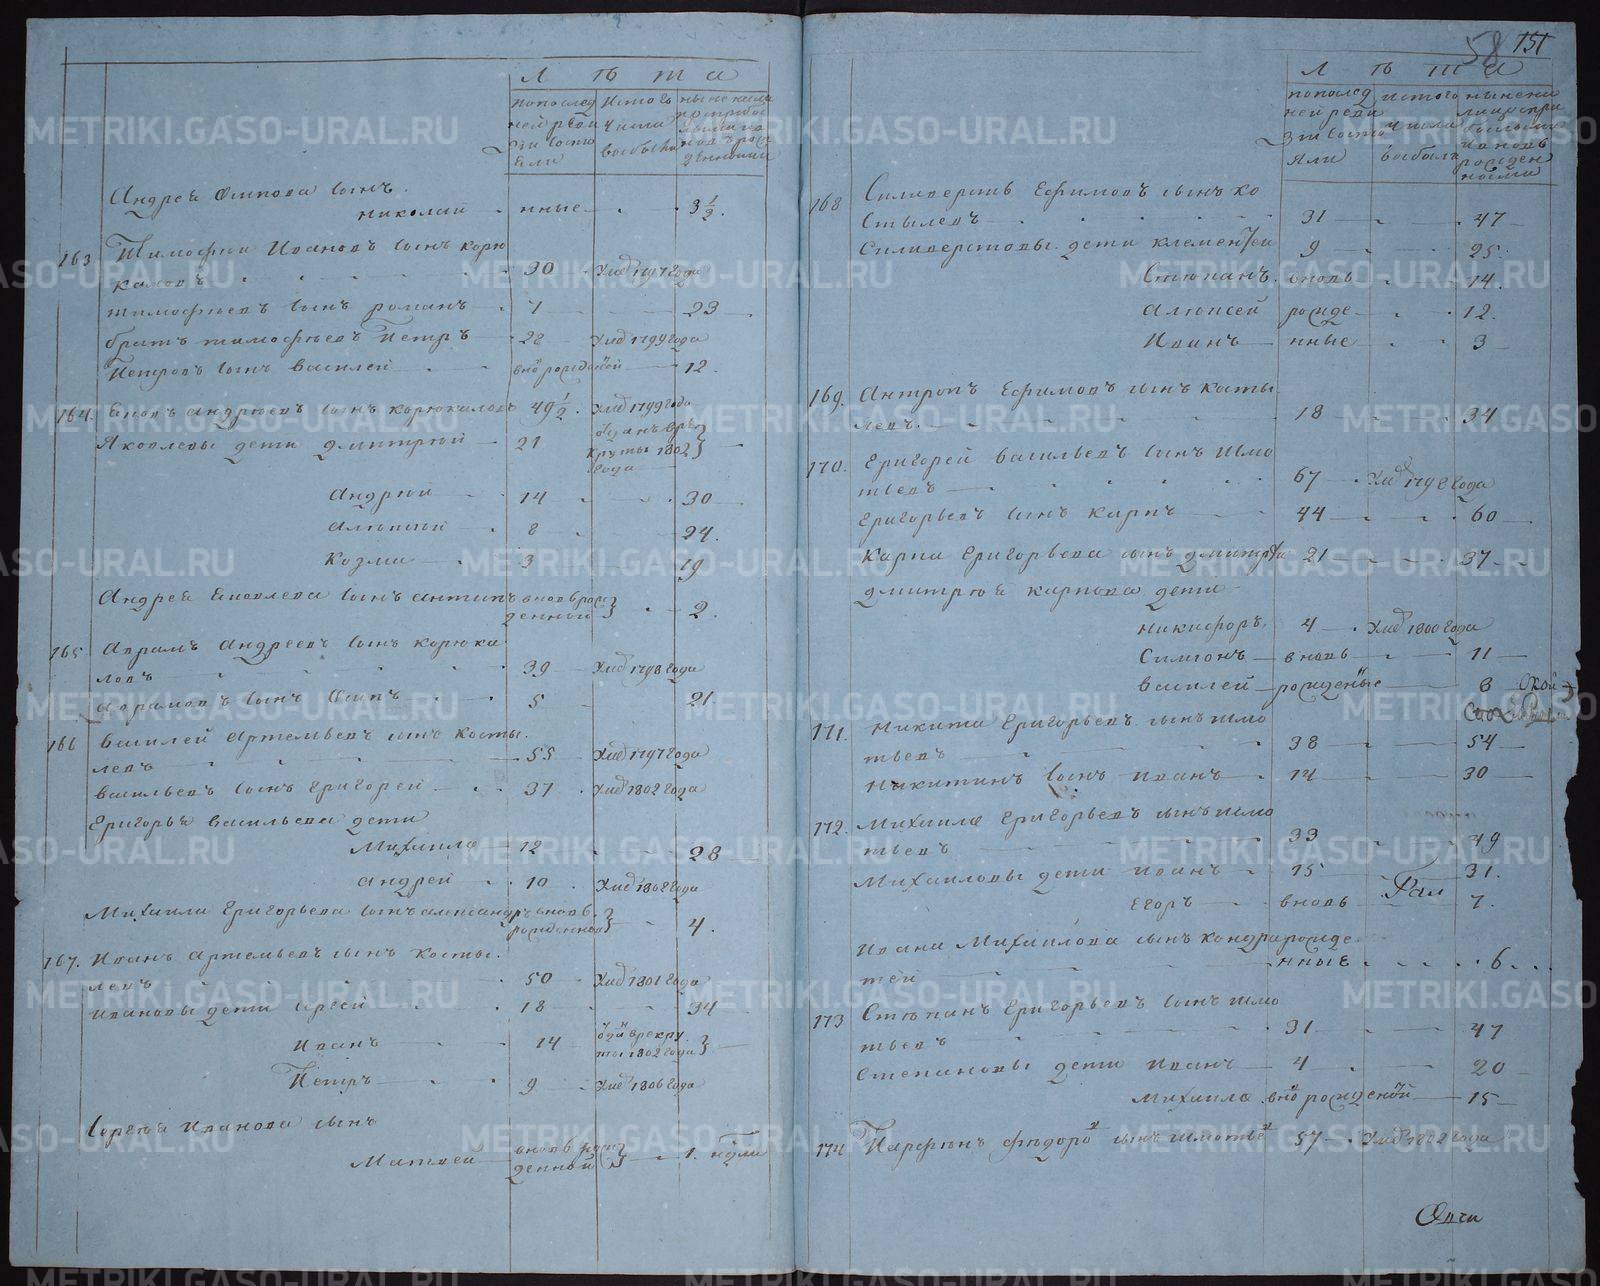 Л Ѣ т а
по послед
ней реви
зіи состо
яли
Андрея Осипова сынъ
Николай нные 3 1/2.
163 Тимофей Ивановъ сынъ Корю
каловъ 30 Умѣ 1797 года
Тимофеевъ сынъ Романъ 7 23
братъ Тимофеевъ Петръ 22 Умѣ 1799 года
Петровъ сынъ Василей вно рожденой 12.
164. Андреевъ сынъ Корюкаловъ 49 1/2. Умѣ 1799 года
Яковлевы дети Дмитрей 21 1802
года
Андрей 14 30
Алексей 8 24.
Козма 3 19
Андрея Яковлева сынъ Антипъ вновь рож
денной 2.
165 Аврамъ Андреевъ сынъ Корюка
ловъ 39 Умѣ 1798 года
Аврамовъ сынъ Осипъ 5 21
166 Василей Артемьевъ сынъ Косты.
левъ 55 Умѣ 1797 года
Васильевъ сынъ Григорей 37 Умѣ 1802 года
Григорья Васильева дети
Михайла 12 28
Андрей 10 Умѣ 1808 года
Михаила Григорьева сынъ Александръ вновь
рожденной 4.
167. Иванъ Артемьевъ сынъ Косты.
левъ 50 Умѣ 1801 года
Ивановы дети Сергей 18 34
Иванъ 14 в рекру
ты 1802 года
Петръ 9 Умѣ 1806 года
Сергея Иванова сынъ
Матвей вновь рож
денной 1. нѣдли
58 151
Л Ѣ т а
по послед
ней реви
зіи состо
яли
из того
числа
выбыло
168 Силиверстъ Ефимовъ сынъ Ко
стылевъ 31 47
Силиверстовы дети Клементей 9 25.
Степанъ. вновь 14.
Алексей рожде 12.
Иванъ нные 3
169. Антропъ Ефимовъ сынъ Косты
левъ. 18 34
170. Григорей Васильевъ сынъ Шмо
тьевъ 67 Умѣ 1798 года
Григорьевъ сынъ Карпъ 44 60
Карпа Григорьева сынъ Дмитрей 21 37
Дмитрея Карпова дети
Никифоръ, 4 Умѣ 1800 года
Симионъ вновь 11
Василей рожденные 8
171. Никита Григорьевъ сынъ Шмо
тьевъ 38 54
Никитинъ сынъ Иванъ 14 30
172. Михайла Григорьевъ сынъ Шмо
тьевъ 33 49
Михаиловы дети Иванъ 15 31.
Егоръ вновь 7.
Ивана Михаилова сынъ Кондра рожде
тей нные 6
173 Степанъ Григорьевъ сынъ Шмо
тьевъ 31 47
Степановы дети Иванъ 4 20
Михайла вно рожденой 15
174 Парфенъ Федоровъ сынъ Шмотьевъ 57 Умѣ 1802 года